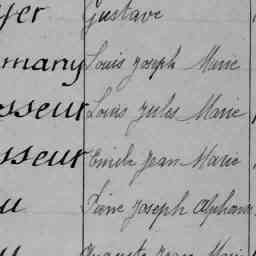 yer Gustave
many Louis Joseph Marie
sseur Louis Jules Marie
sseur Emile Jean Marie
u Pierre Joseph Alphonse
Auguste Jean Marie